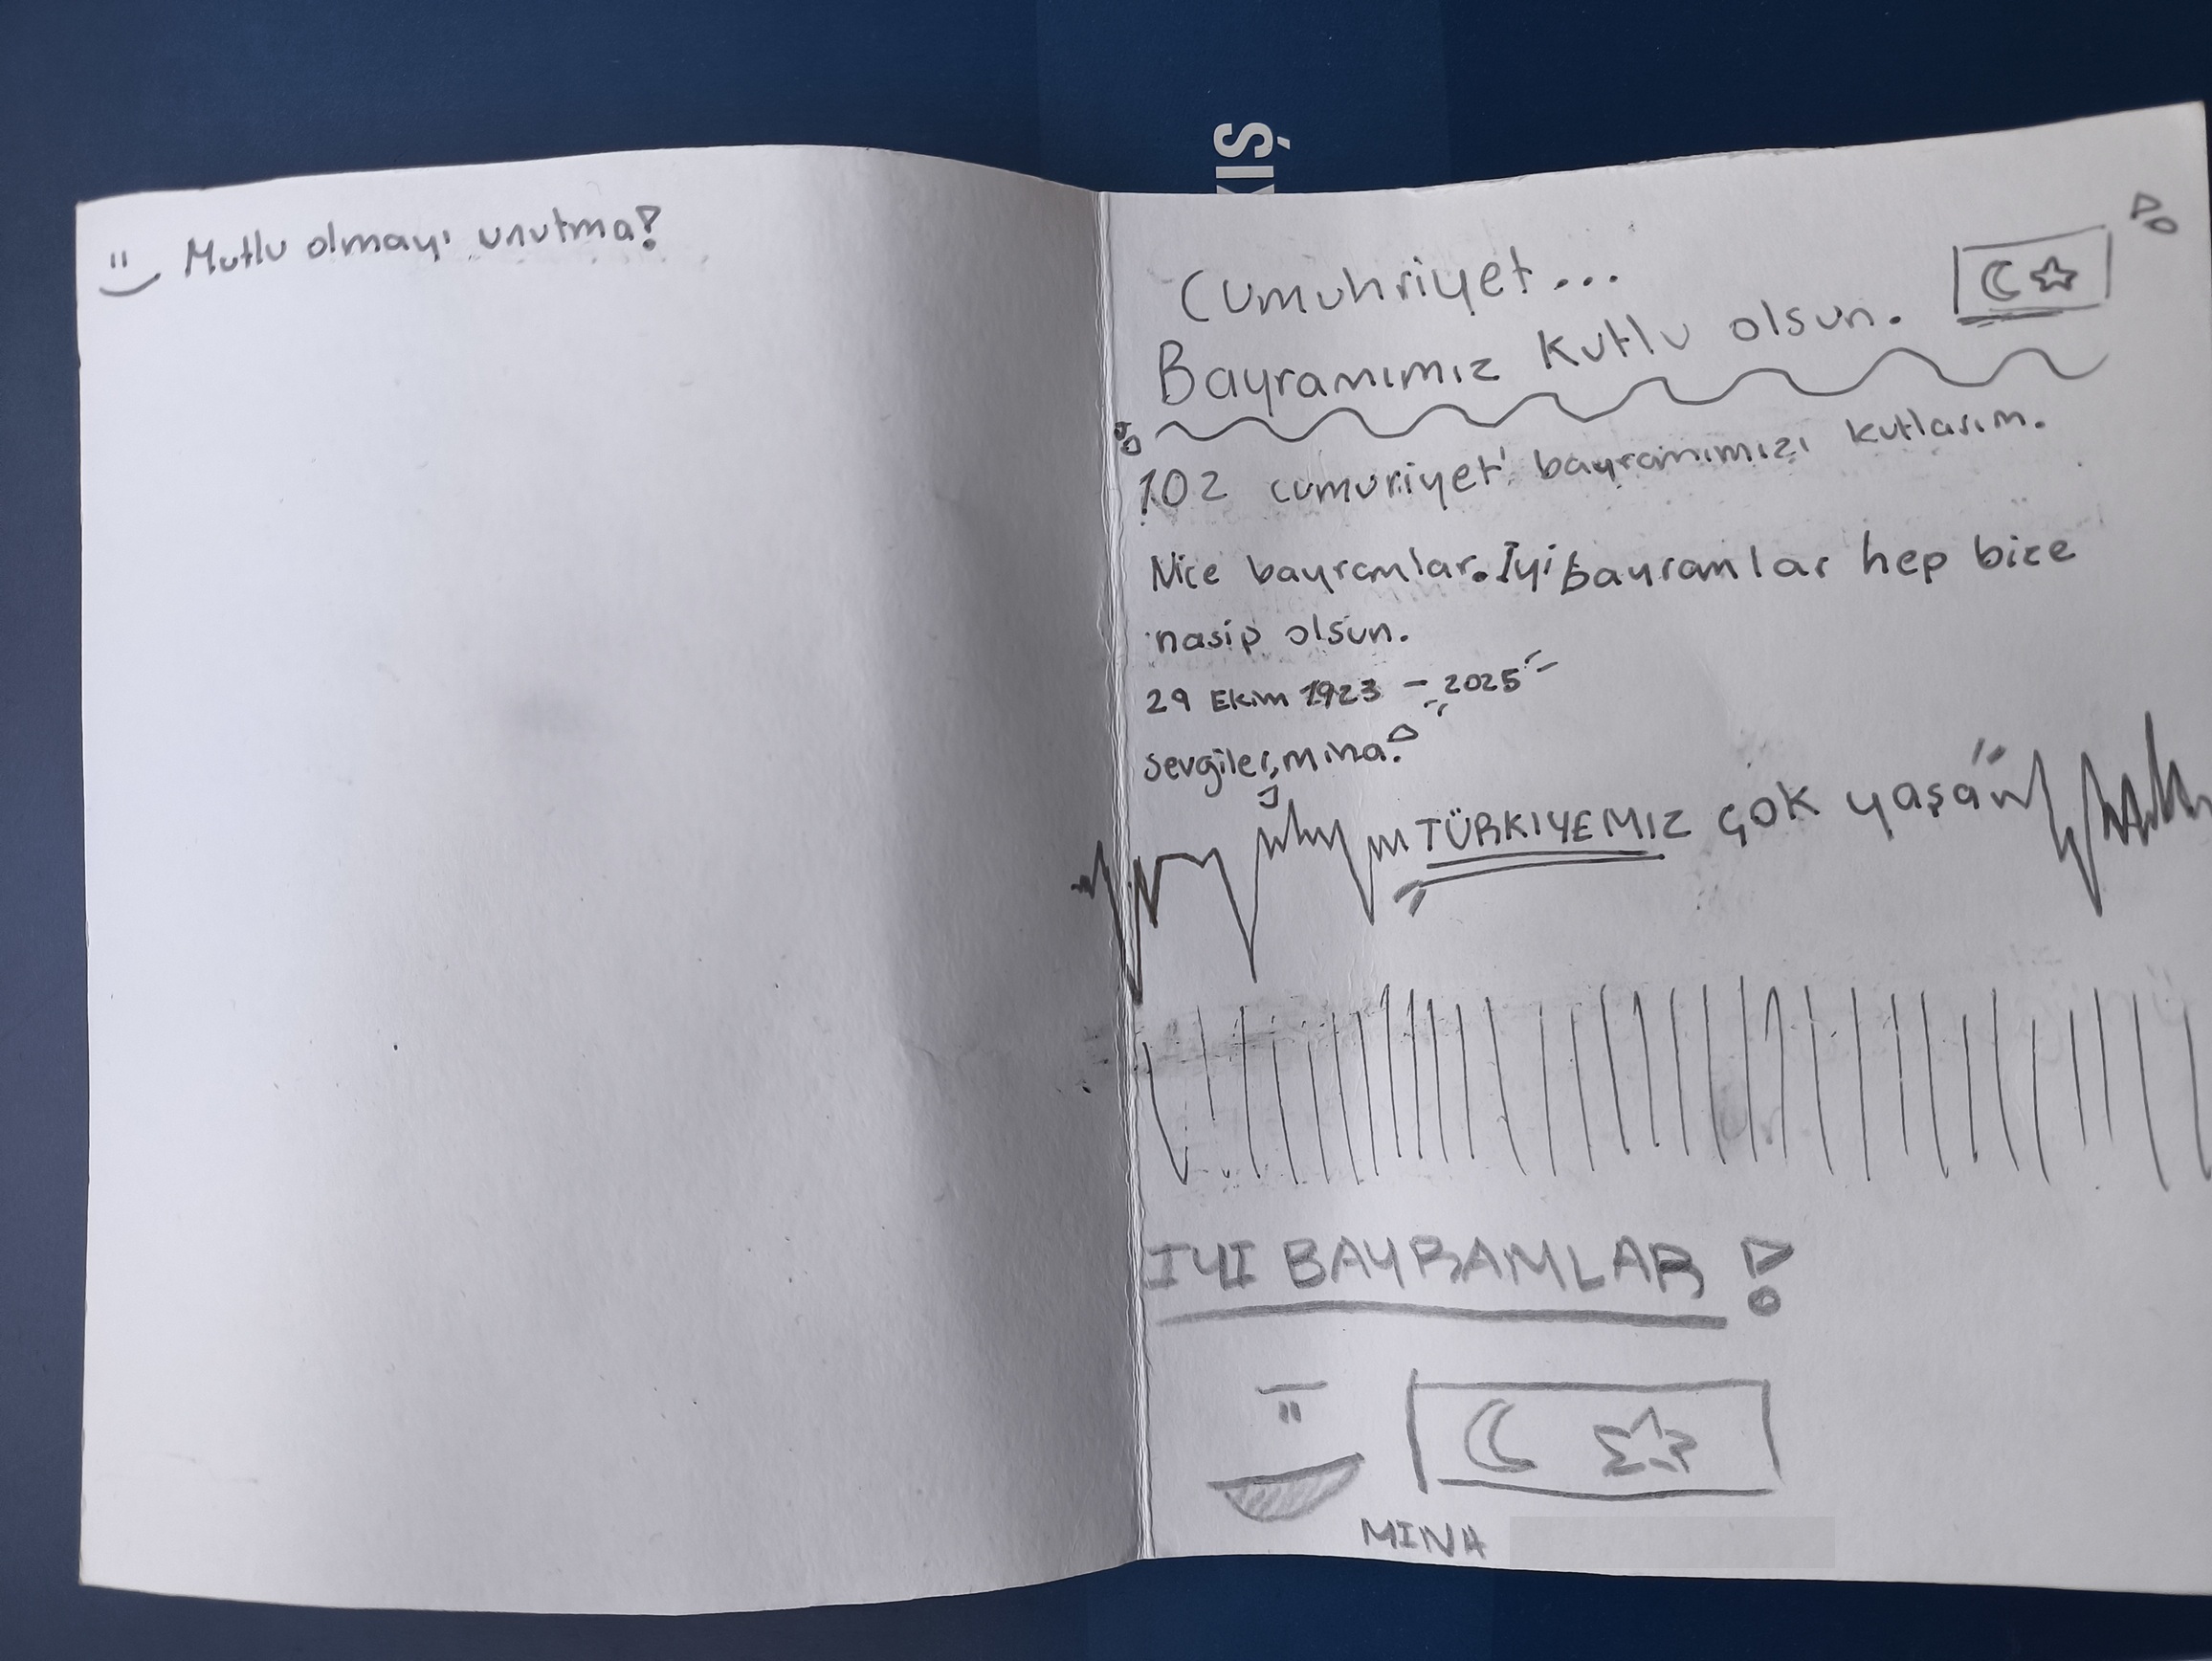 KIŞ
Mutlu olmayı unutma!
Cumuhriyet...
Bayramımız kutlu olsun.
102 cumuriyet' bayramımızı kutlarım.
Nice bayramlar. İyi bayramlar hep bize
nasip olsun.
29 Ekim 1923 - 2025
sevgiler, mina!
TÜRKIYEMIZ çok yaşa
IYI BAYRAMLAR!
MINA